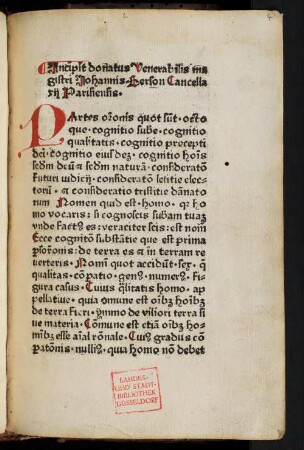 Incipit donatus Venerabilis ma
gistri Johannis Gerson Cancella
rij Parisiensis.
PArtes or̄onis quot sūt. octo
que. cognitio sube. cognitio
qualitatis. cognitio precepti
dei. cognitio eiusdez. cognitio hoīs
sedm deū ⁊ sedm naturā. ꝯsideratō
futuri iudicij. ꝯsideratō letitie elec
torū. ⁊ ꝯsideratio tristitie dānato
rum Nomen quid est. homo. qz ho
mo vocaris: si cognoscis subam tuaz
vnde factꝰ es: veraciter scis: est nom̄
Ecce cognitō substātie que est prima
ps or̄onis: de terra es ⁊ in terram re
uerteris. Nomī quot accidūt. sex. q̄
qualitas. cōpatio. genꝰ. numerꝰ. fi
gura casus. Cuius q̄litatis homo. ap
pellatiue. quia omune est oībꝫ hoībꝫ
de terra fieri. ymmo de viliori terra si
ue materia. Cōmune est etiā oībꝫ ho
mībꝫ esse aīal rōnale. Cuiꝰ gradus cō
patonis. nulliꝰ. quia homo nō debet
LANDES-
UND STADT-
BIBLIOTHEK
DÜSSELDORF